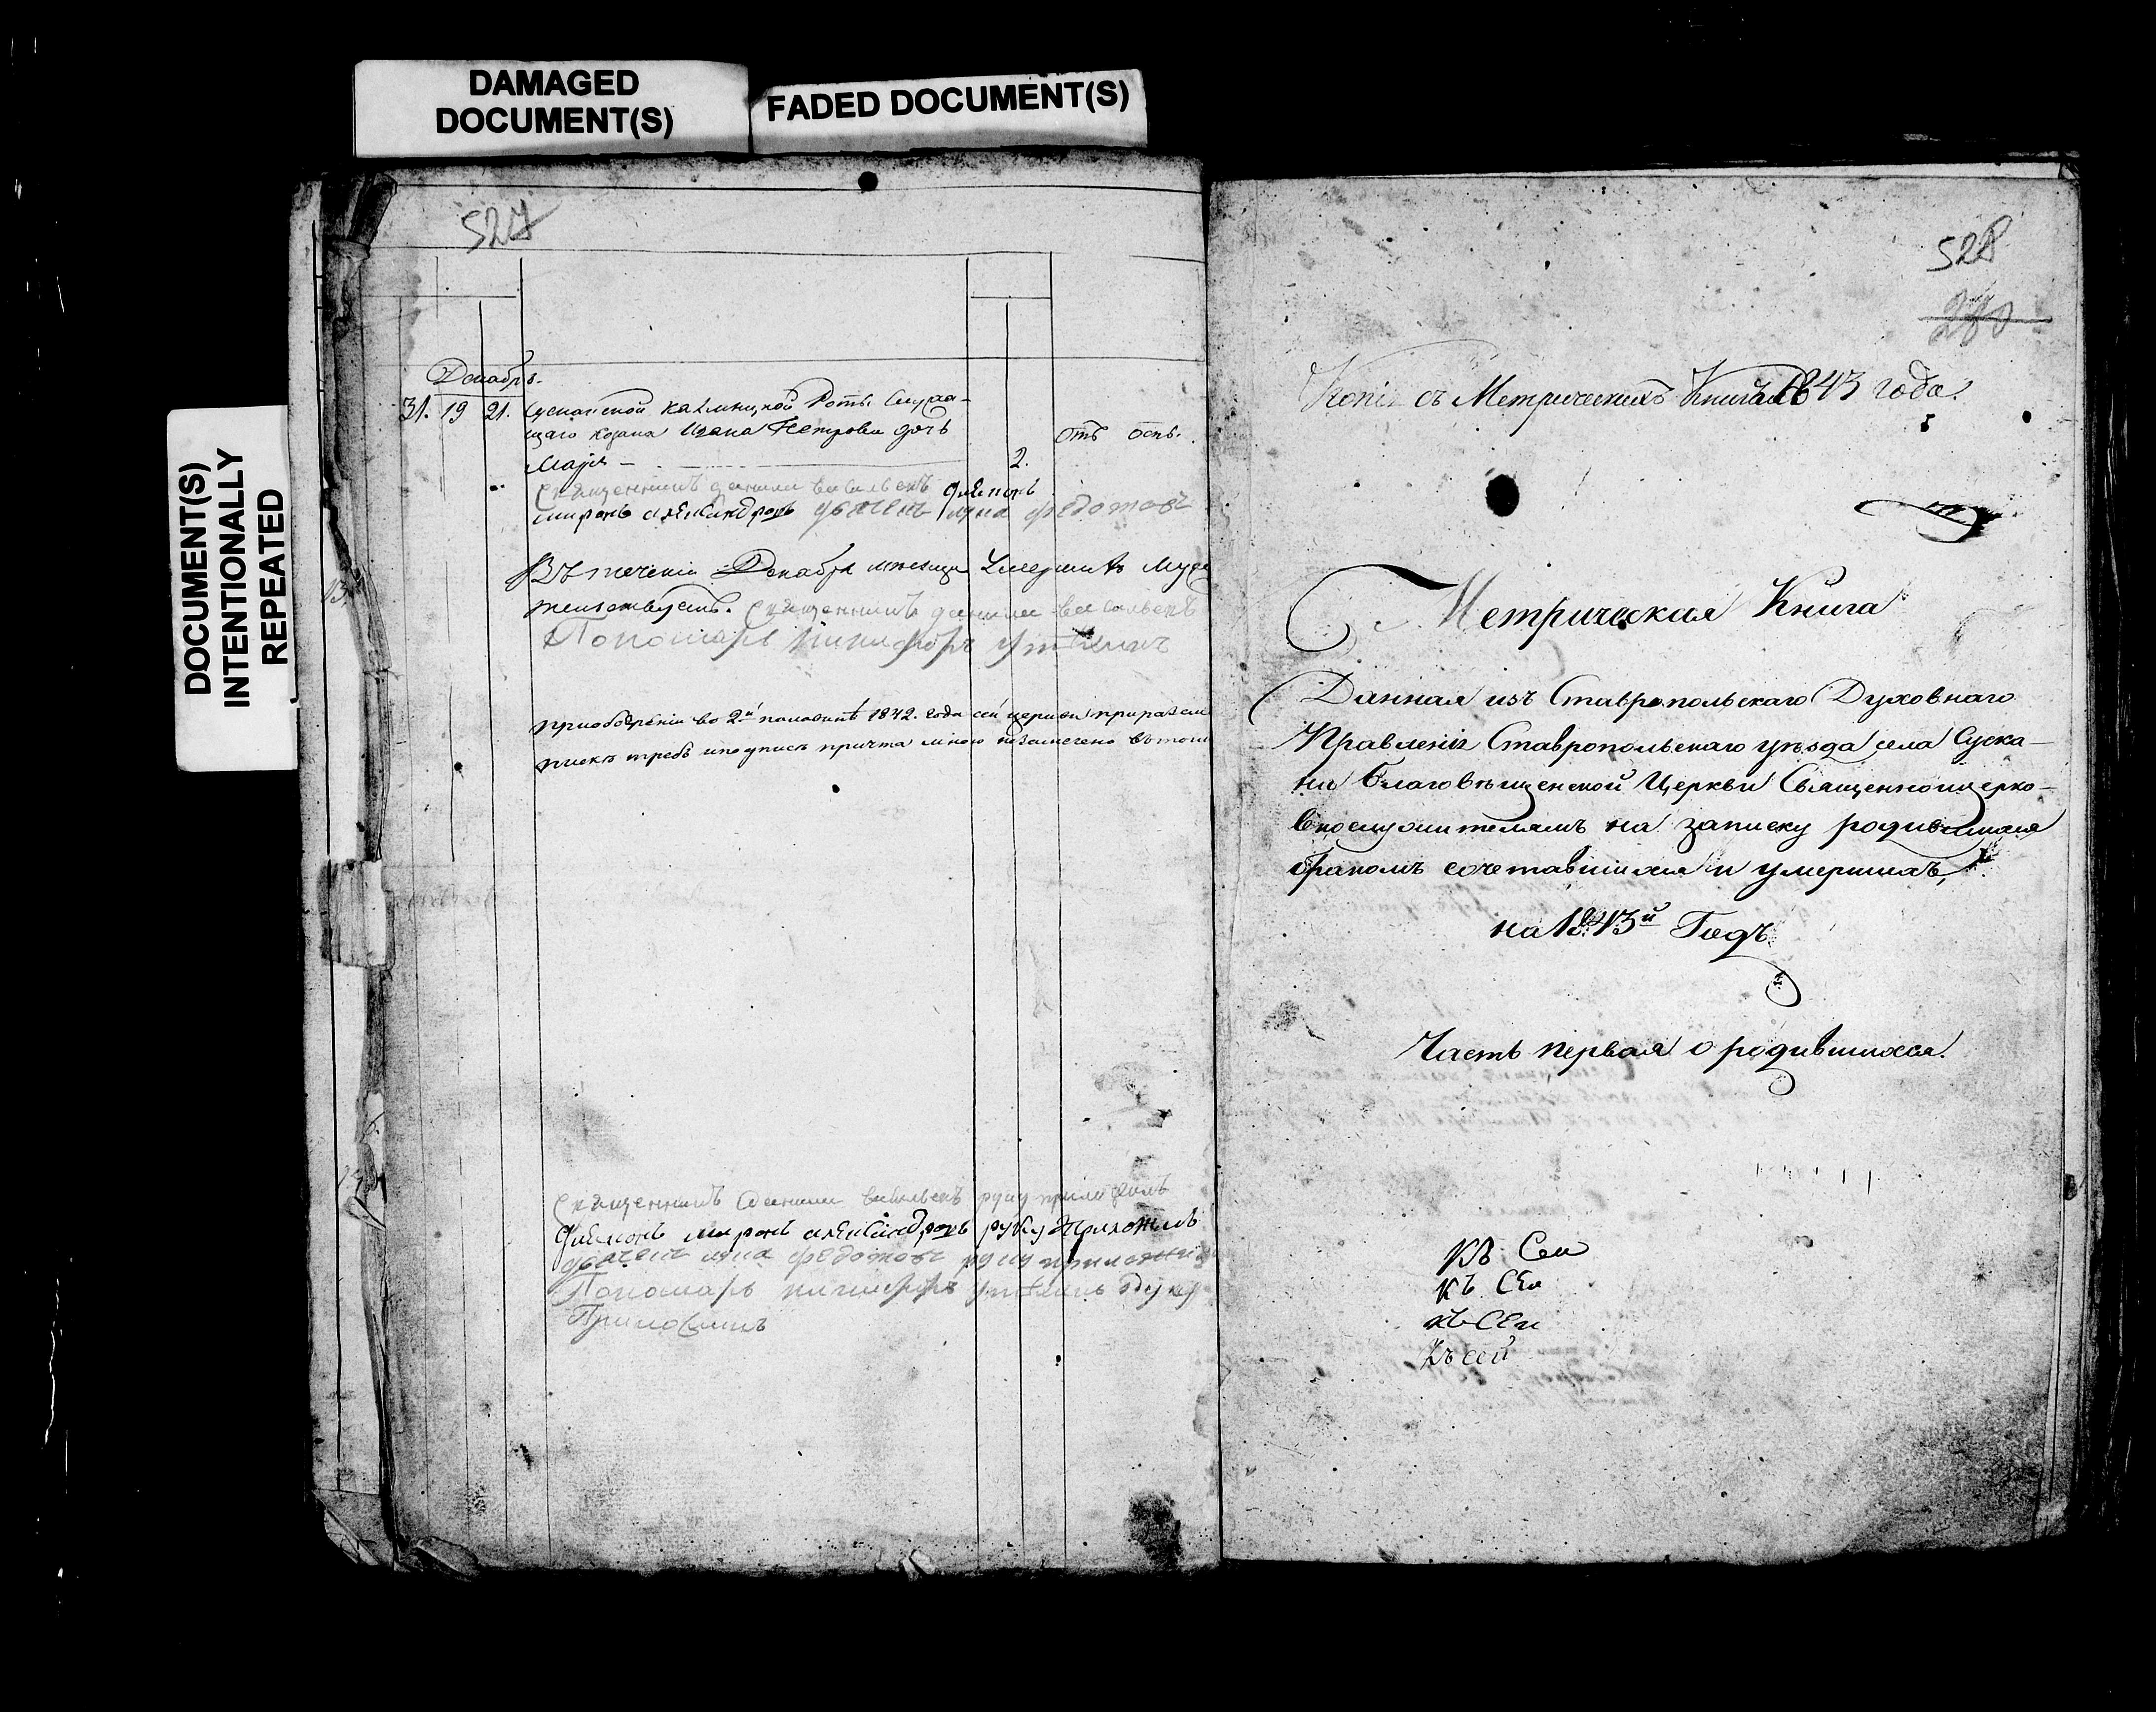 DAMAGED
DOCUMENT(S)
FADED DOCUMENT(S)
DOCUMENT(S)
INTENTIONALLY
REPEATED
527
Декабрь.
31. 19 21. Сусканской Калмыцкой Роты Служа-
щаго козака Ивана Петрова дочь
Марья 2. отъ оспы.
Священникъ данила васильевъ Диаконъ
миронъ александровъ дьячекъ федотовъ
Въ течении Декабря месяца Умершихъ
женска
Священникъ данила васильевъ
Пономарь никифоръ
во 2й половинѣ 1842. года сей церкви
требъ и подписи причта мною незамечено
Священникъ Данила васильевъ руку приложилъ
Диаконъ миронъ александровъ руку Приложилъ
дьячекъ федотовъ руку приложилъ
Пономарь никифоръ руку
Приложилъ
528
280
Копія съ Метрическихъ Книгъ 1843 года.
Метрическая Книга
Данная изъ Ставропольскаго Духовнаго
Правленія Ставропольскаго уѣзда села Суска-
на Благовѣщенской Церкви Священноцерко-
внослужителямъ на записку родившихся
бракомъ сочетавшихся и умершихъ,
на 1843й Годъ.
Часть первая о родившихся.
Къ Сей
къ Сей
къ Сей
Къ сей